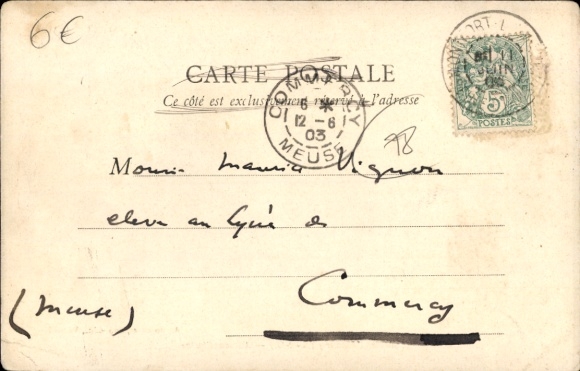 6€
CARTE POSTALE
Ce côté est exclusivement réservé à l'adresse
COMMERCY
6 *
12 - 6
03
MEUSE
MONTFORT-L
11
JUIN
03
5c
POSTES
98
Monsieur Maurice Vignon
eleve au Lycée de
Commercy
(Meuse)